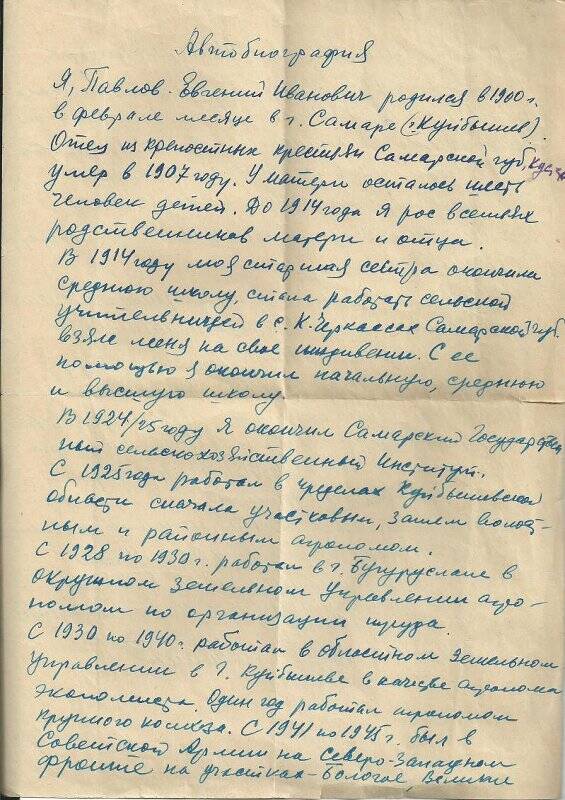 Автобиография
Я, Павлов Евгений Иванович родился в 1900 г.
в феврале месяце в г. Самаре (г. Куйбышев).
Отец из крепостных крестьян Самарской губ,
умер в 1907 году. У матери осталось шесть
человек детей. До 1914 года я рос в семьях
родственников матери и отца.
В 1914 году моя старшая сестра окончила
среднюю школу, стала работать сельской
учительницей в с. К. Черкассах Самарской губ.
взяла меня на свое иждивении. С ее
помощью я окончил начальную, среднюю
и высшую школу.
В 1924/25 году я окончил Самарский Государствен
ный сельскохозяйственный Институт.
С 1925 года работал в пределах Куйбышевской
области сначала участковым, затем волост-
ным и районным агрономом.
С 1928 по 1930 г. работал в г. Бугуруслане в
окружном Земельном Управлении агро-
номом по организации труда.
С 1930 по 1940 г. работал в областном Земельном
Управлении в г. Куйбышеве в качестве агронома
экономиста. Один год работал агрономом
крупного колхоза. С 1941 по 1945 г. был в
Советской Армии на Северо-Западном
фронте на участках - Бологое, Великие